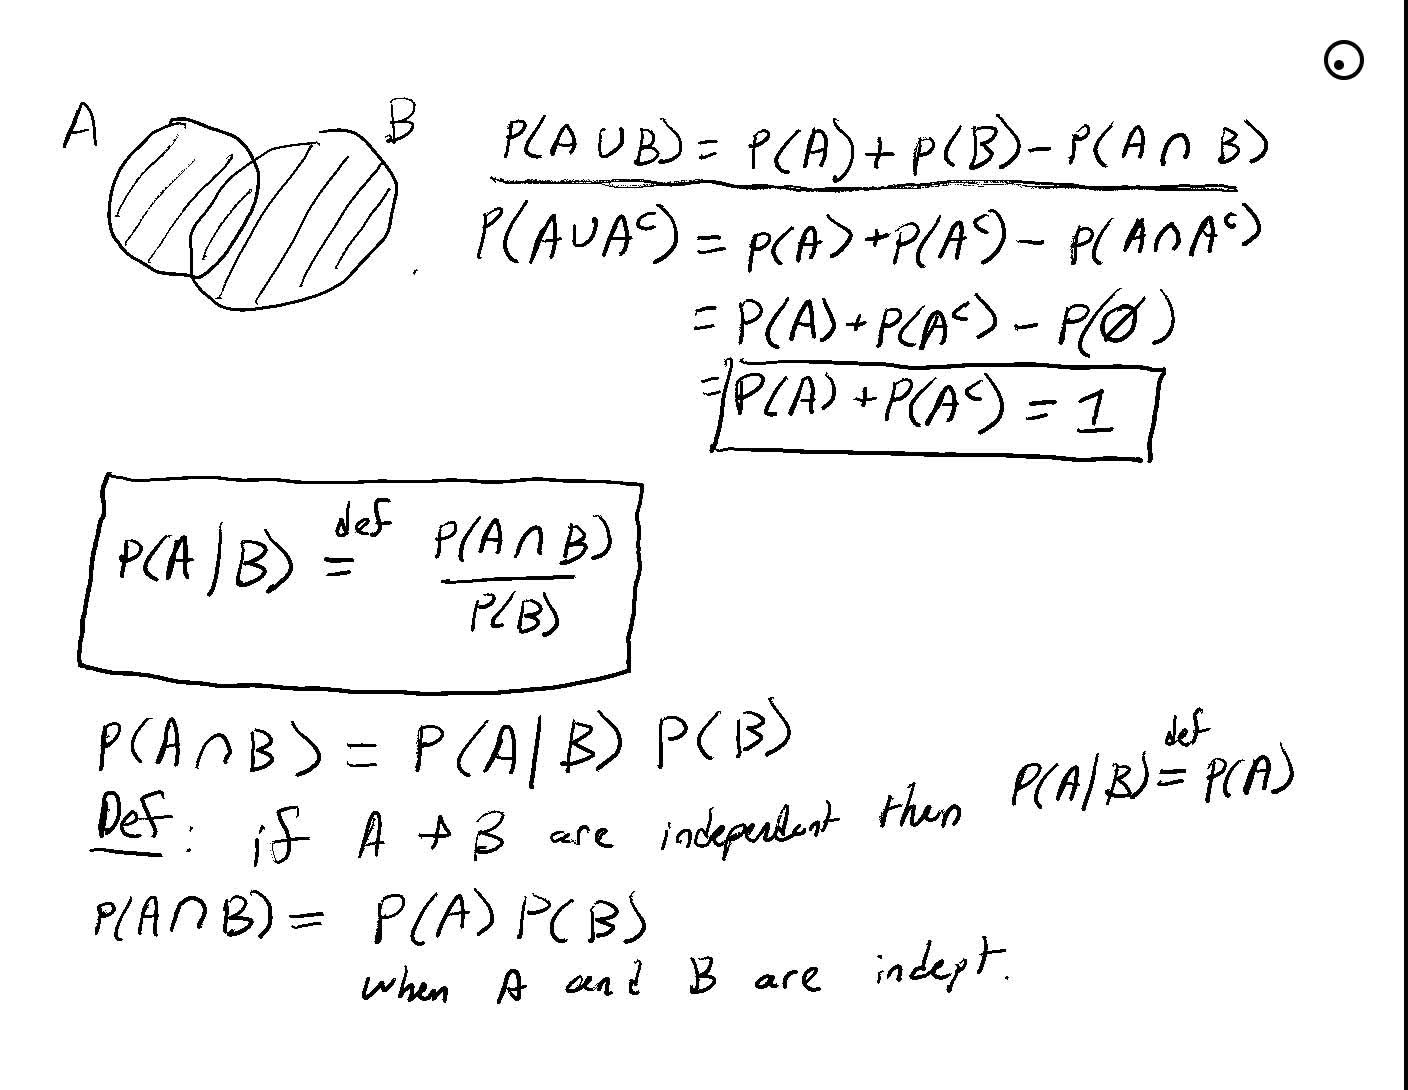 A B
P(A ∪ B) = P(A) + P(B) - P(A ∩ B)
P(A ∪ Aᶜ) = P(A) + P(Aᶜ) - P(A ∩ Aᶜ)
= P(A) + P(Aᶜ) - P(∅)
= P(A) + P(Aᶜ) = 1
P(A | B) def= P(A ∩ B) / P(B)
P(A ∩ B) = P(A | B) P(B)
Def: if A + B are independent then P(A | B) def= P(A)
P(A ∩ B) = P(A) P(B)
when A and B are indept.